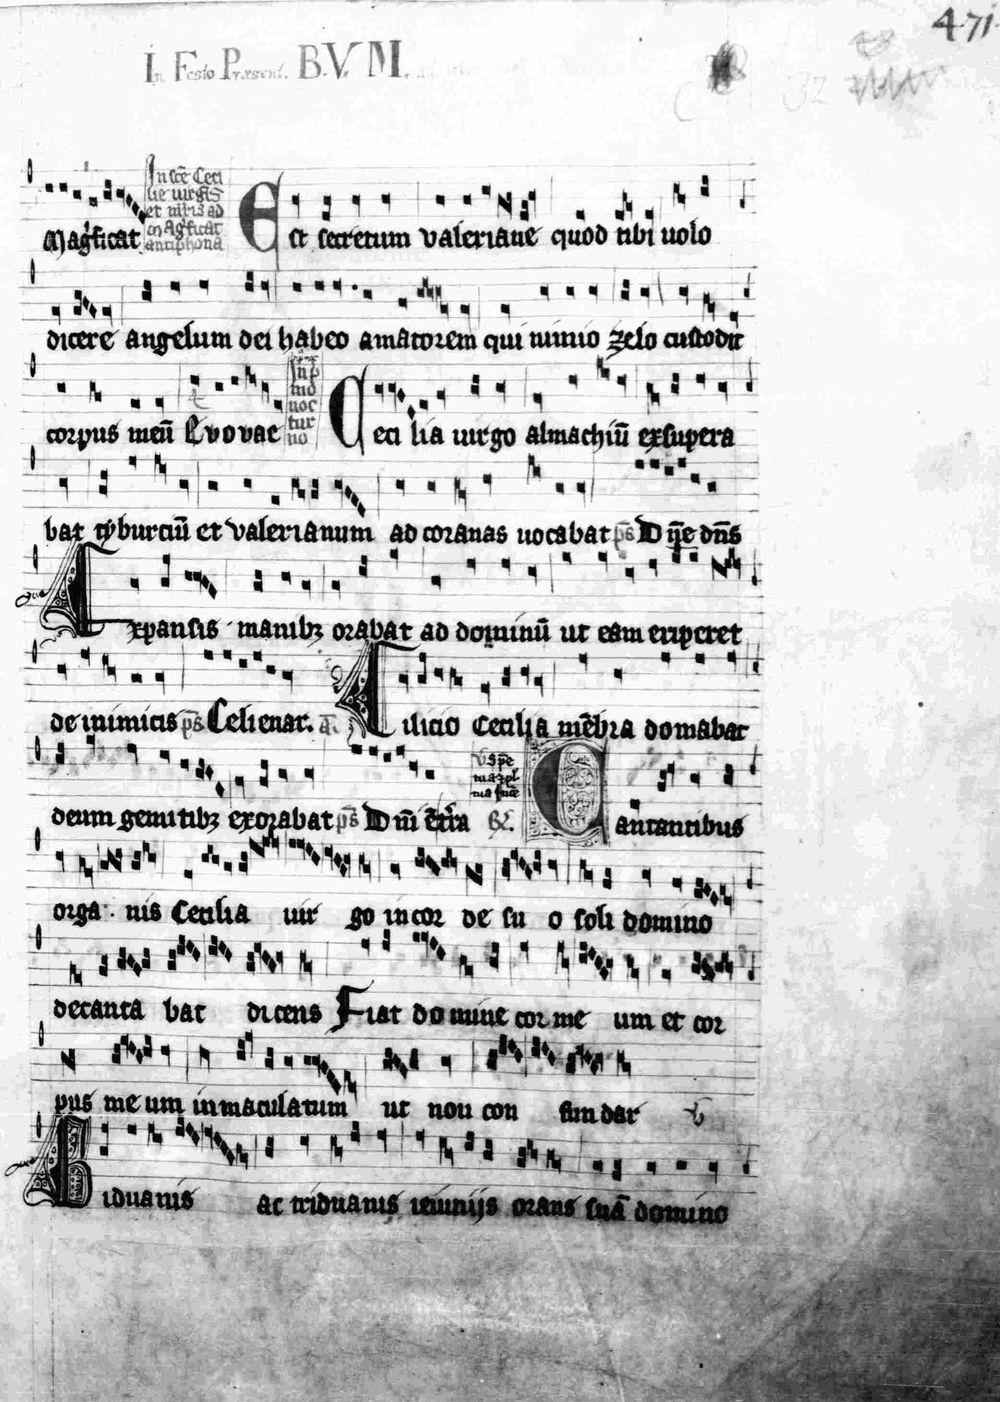 471
In Festo Præsent. B.V.M.
In sce Ceci
lie uirgis
et mris ad
magficat
antiphona
magficat Est secretum valeriane quod tibi uolo
dicere angelum dei habeo amatorem qui nimio zelo custodit
In p
mo
noc
tur
no
corpus meū Evovae Ceci lia uirgo almachiū exsupera
bat tyburciū et valerianum ad coronas uocabat ps Dne dns
Expansis manibz orabat ad dominū ut eam eriperet
de inimicis ps Celi enar. a. Cilicio Cecilia mēbra domabat
deum gemitibz exorabat ps Dni ētra R. Cantantibus
orga nis Cecilia uir go in cor de su o soli domino
decanta bat dicens Fiat domine cor me um et cor
pus me um inmaculatum ut non con fundar V
Biduanis ac triduanis ieiunijs orans suā domino